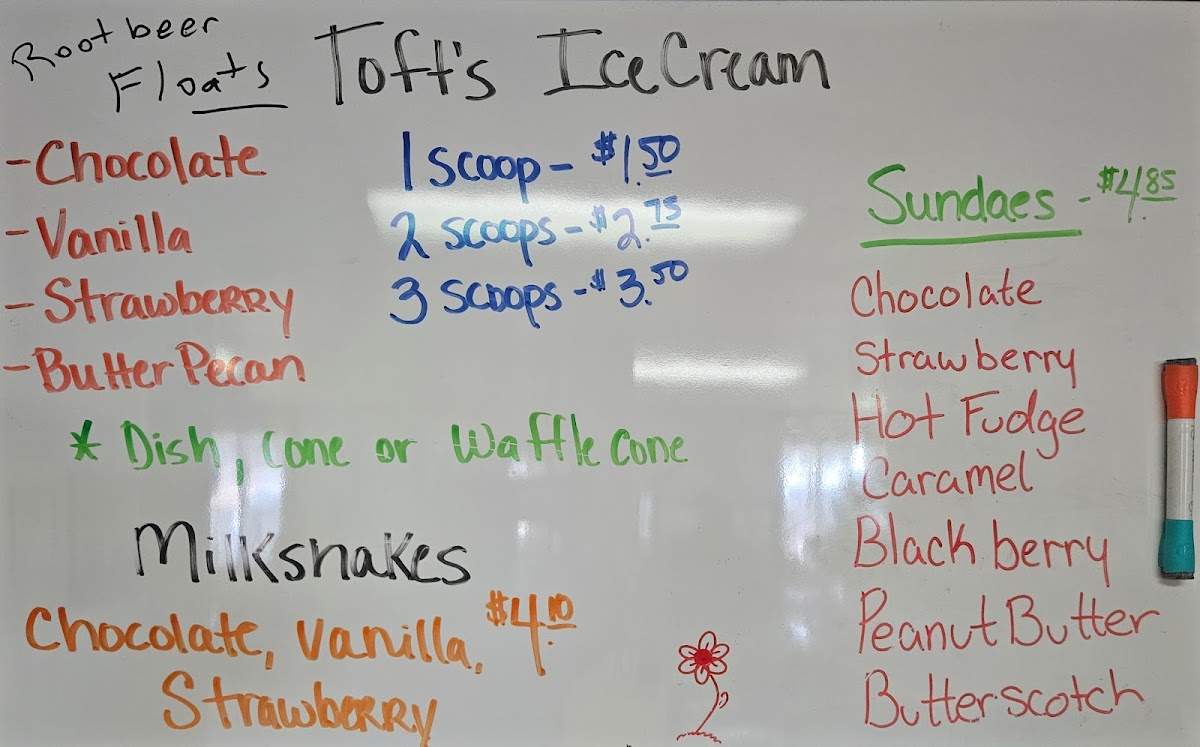 Root beer
Floats
Toft's Ice Cream
- Chocolate
- Vanilla
- Strawberry
- Butter Pecan
1 scoop - $1.50
2 scoops - $2.75
3 scoops - $3.50
* Dish, Cone or Waffle Cone
Milkshakes
Chocolate, Vanilla, $4.10
Strawberry
Sundaes - $4.85
Chocolate
Strawberry
Hot Fudge
Caramel
Blackberry
Peanut Butter
Butterscotch